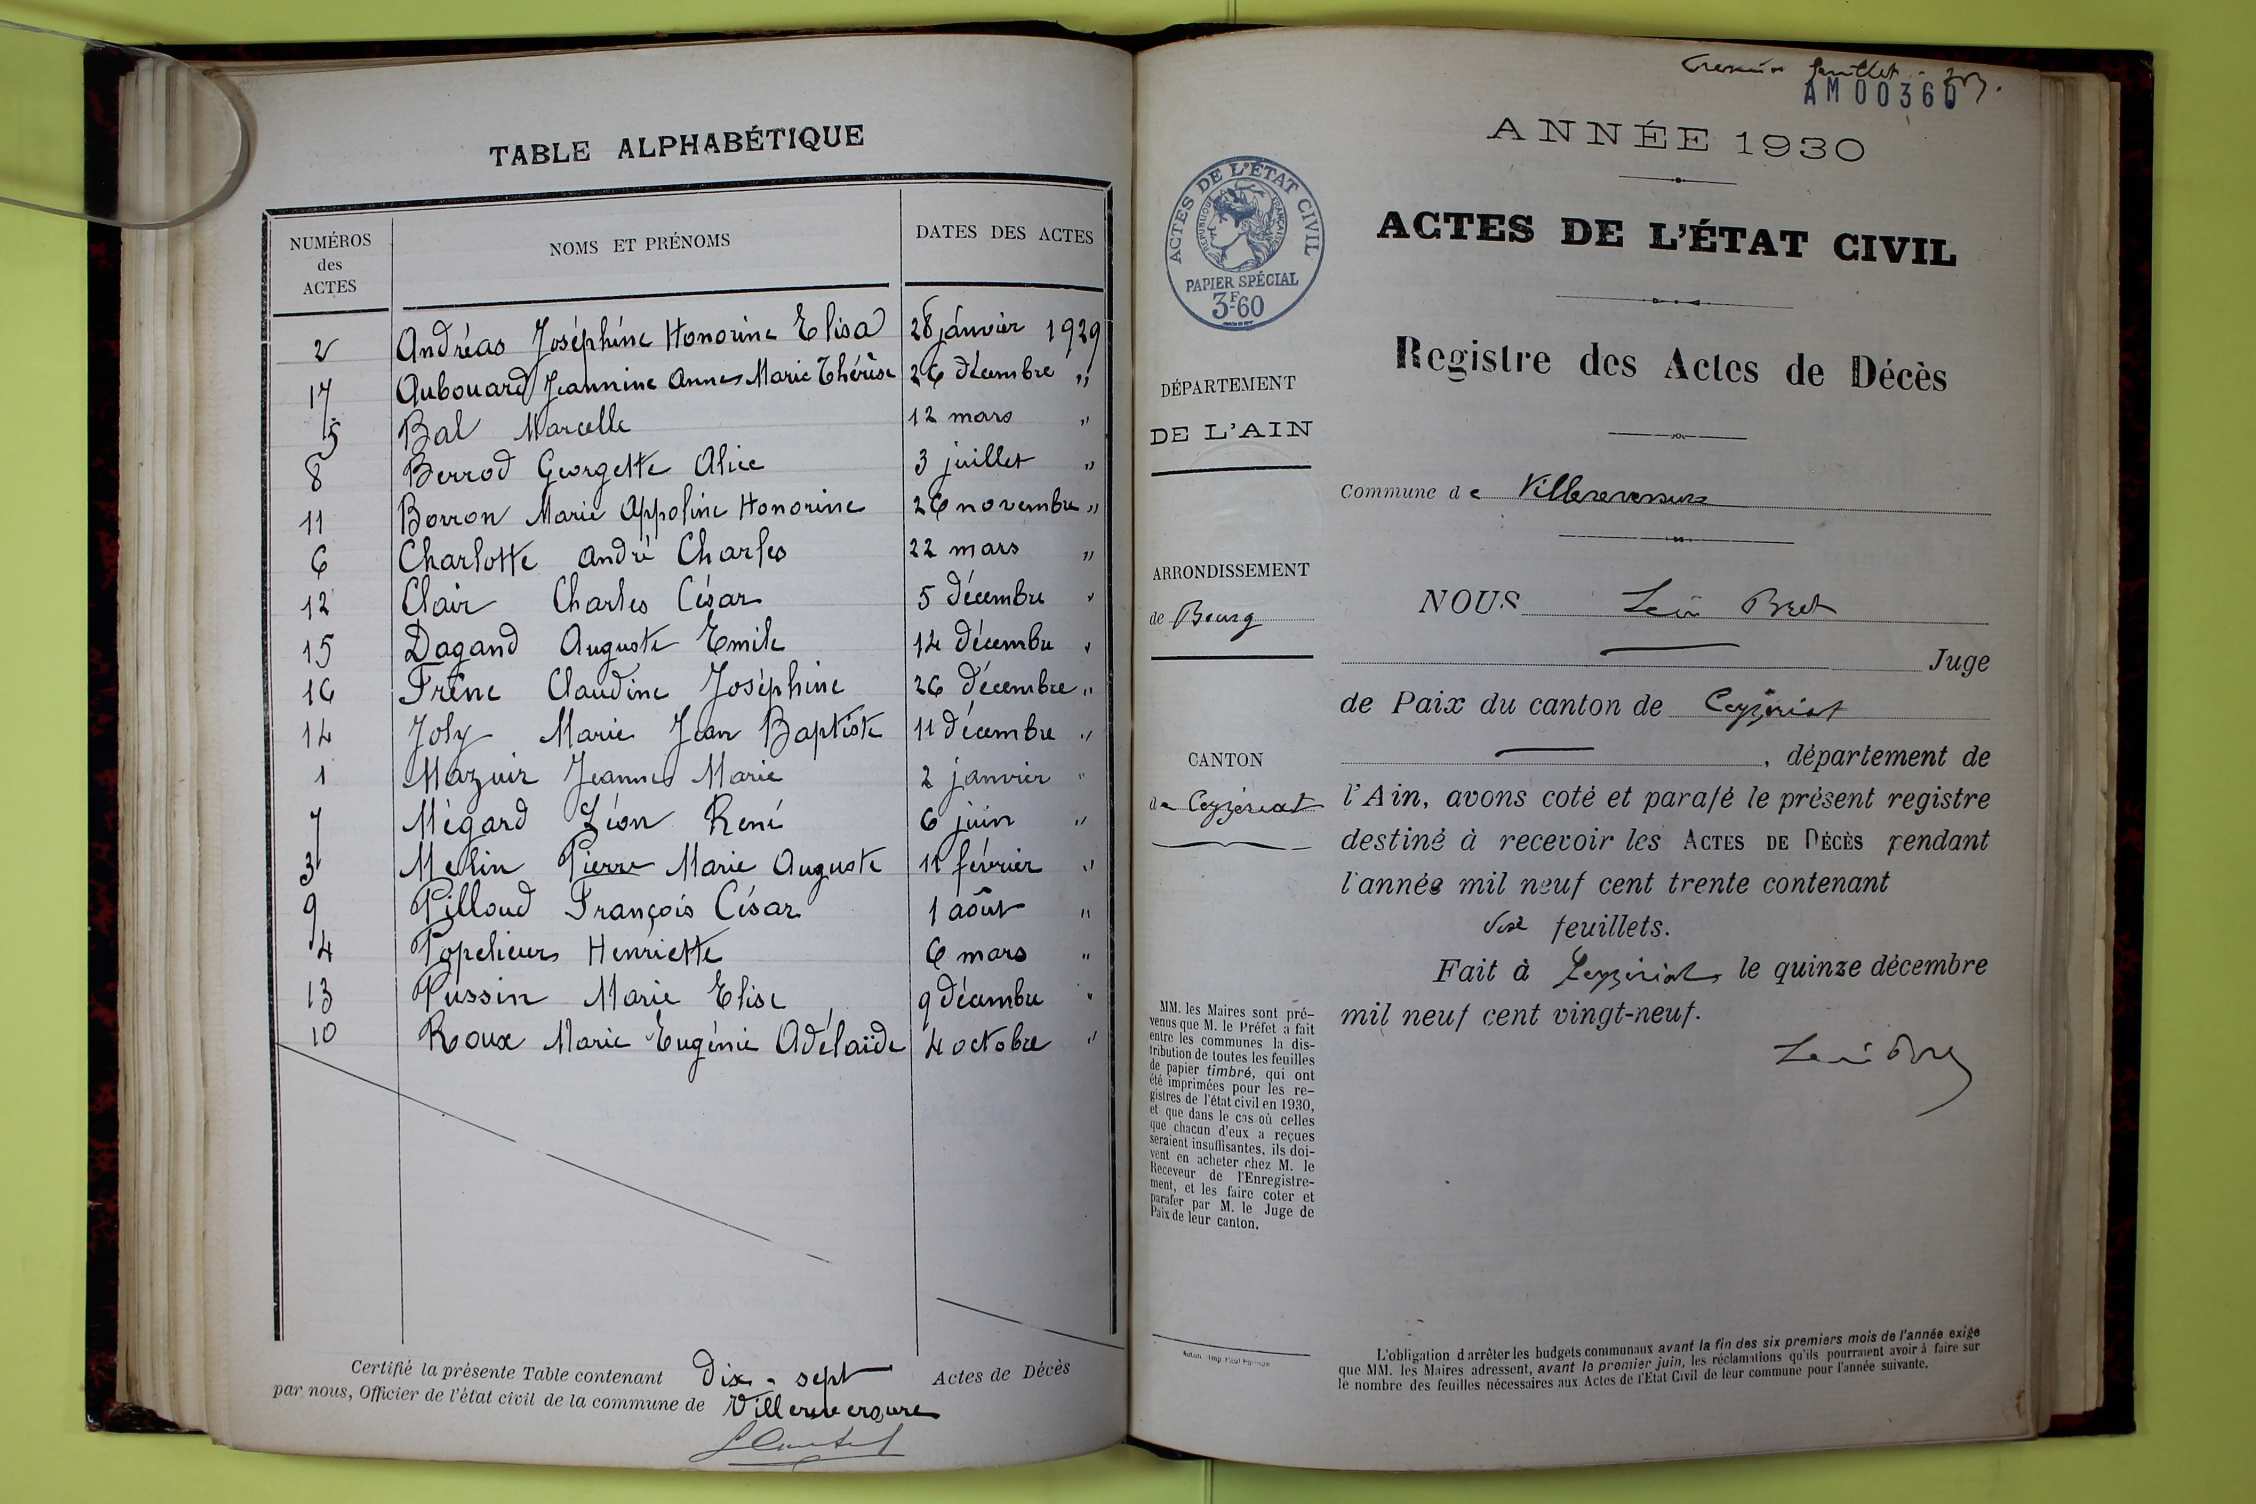 TABLE ALPHABÉTIQUE
NUMÉROS des ACTES NOMS ET PRÉNOMS DATES DES ACTES
2 Andréas Joséphine Honorine Elisa 28 janvier 1929
17 Aubouard Jeannine Anne Marie Thérèse 26 décembre "
5 Bal Marcelle 12 mars "
8 Berrod Georgette Alice 3 juillet "
11 Borron Marie Appoline Honorine 26 novembre "
6 Charlotte André Charles 22 mars "
12 Clair Charles César 5 décembre "
15 Dagand Auguste Emile 14 décembre "
16 Frêne Claudine Joséphine 26 décembre "
14 Joly Marie Jean Baptiste 11 décembre "
1 Mazuir Jeanne Marie 2 janvier "
7 Mégard Léon René 6 juin "
3 Merlin Pierre Marie Auguste 11 février "
9 Pilloud François César 1 août "
4 Popelieurs Henriette 6 mars "
13 Pussin Marie Elise 9 décembre "
10 Roux Marie Eugénie Adélaïde 4 octobre "
Certifié la présente Table contenant dix-sept Actes de Décès
par nous, Officier de l'état civil de la commune de Villereversure
feuillet
AM00360
ANNÉE 1930
ACTES DE L'ÉTAT CIVIL
RÉPUBLIQUE FRANÇAISE
PAPIER SPÉCIAL
3F60
ACTES DE L'ÉTAT CIVIL
Registre des Actes de Décès
DÉPARTEMENT
DE L'AIN
Commune de Villereversure
ARRONDISSEMENT
de Bourg
NOUS Léon Bret
Juge
de Paix du canton de Ceyzériat
, département de
CANTON
de Ceyzériat
l'Ain, avons coté et parafé le présent registre
destiné à recevoir les ACTES DE DÉCÈS pendant
l'année mil neuf cent trente contenant
feuillets.
Fait à Ceyzériat, le quinze décembre
mil neuf cent vingt-neuf.
MM. les Maires sont pré-
venus que M. le Préfet a fait
entre les communes la dis-
tribution de toutes les feuilles
de papier timbré, qui ont
été imprimées pour les re-
gistres de l'état civil en 1930,
et que dans le cas où celles
que chacun d'eux a reçues
seraient insuffisantes, ils doi-
vent en acheter chez M. le
Receveur de l'Enregistre-
ment, et les faire coter et
parafer par M. le Juge de
Paix de leur canton.
L'obligation d'arrêter les budgets communaux avant la fin des six premiers mois de l'année exige
que MM. les Maires adressent, avant le premier juin, les réclamations qu'ils pourraient avoir à faire sur
le nombre des feuilles nécessaires aux Actes de l'Etat Civil de leur commune pour l'année suivante.